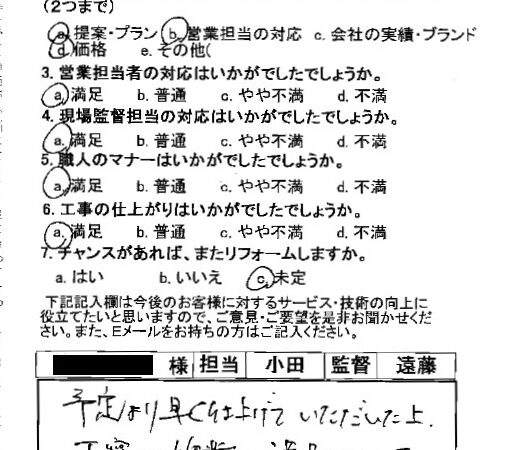 (2つまで)
a. 提案・プラン b. 営業担当の対応 c. 会社の実績・ブランド
d. 価格 e. その他(
3. 営業担当者の対応はいかがでしたでしょうか。
a. 満足 b. 普通 c. やや不満 d. 不満
4. 現場監督担当の対応はいかがでしたでしょうか。
a. 満足 b. 普通 c. やや不満 d. 不満
5. 職人のマナーはいかがでしたでしょうか。
a. 満足 b. 普通 c. やや不満 d. 不満
6. 工事の仕上がりはいかがでしたでしょうか。
a. 満足 b. 普通 c. やや不満 d. 不満
7. チャンスがあれば、またリフォームしますか。
a. はい b. いいえ c. 未定
下記記入欄は今後のお客様に対するサービス・技術の向上に
役立てたいと思いますので、ご意見・ご要望を是非お聞かせくだ
さい。また、Eメールをお持ちの方はご記入ください。
様 担当 小田 監督 遠藤
予定より早く仕上げていただいた上、